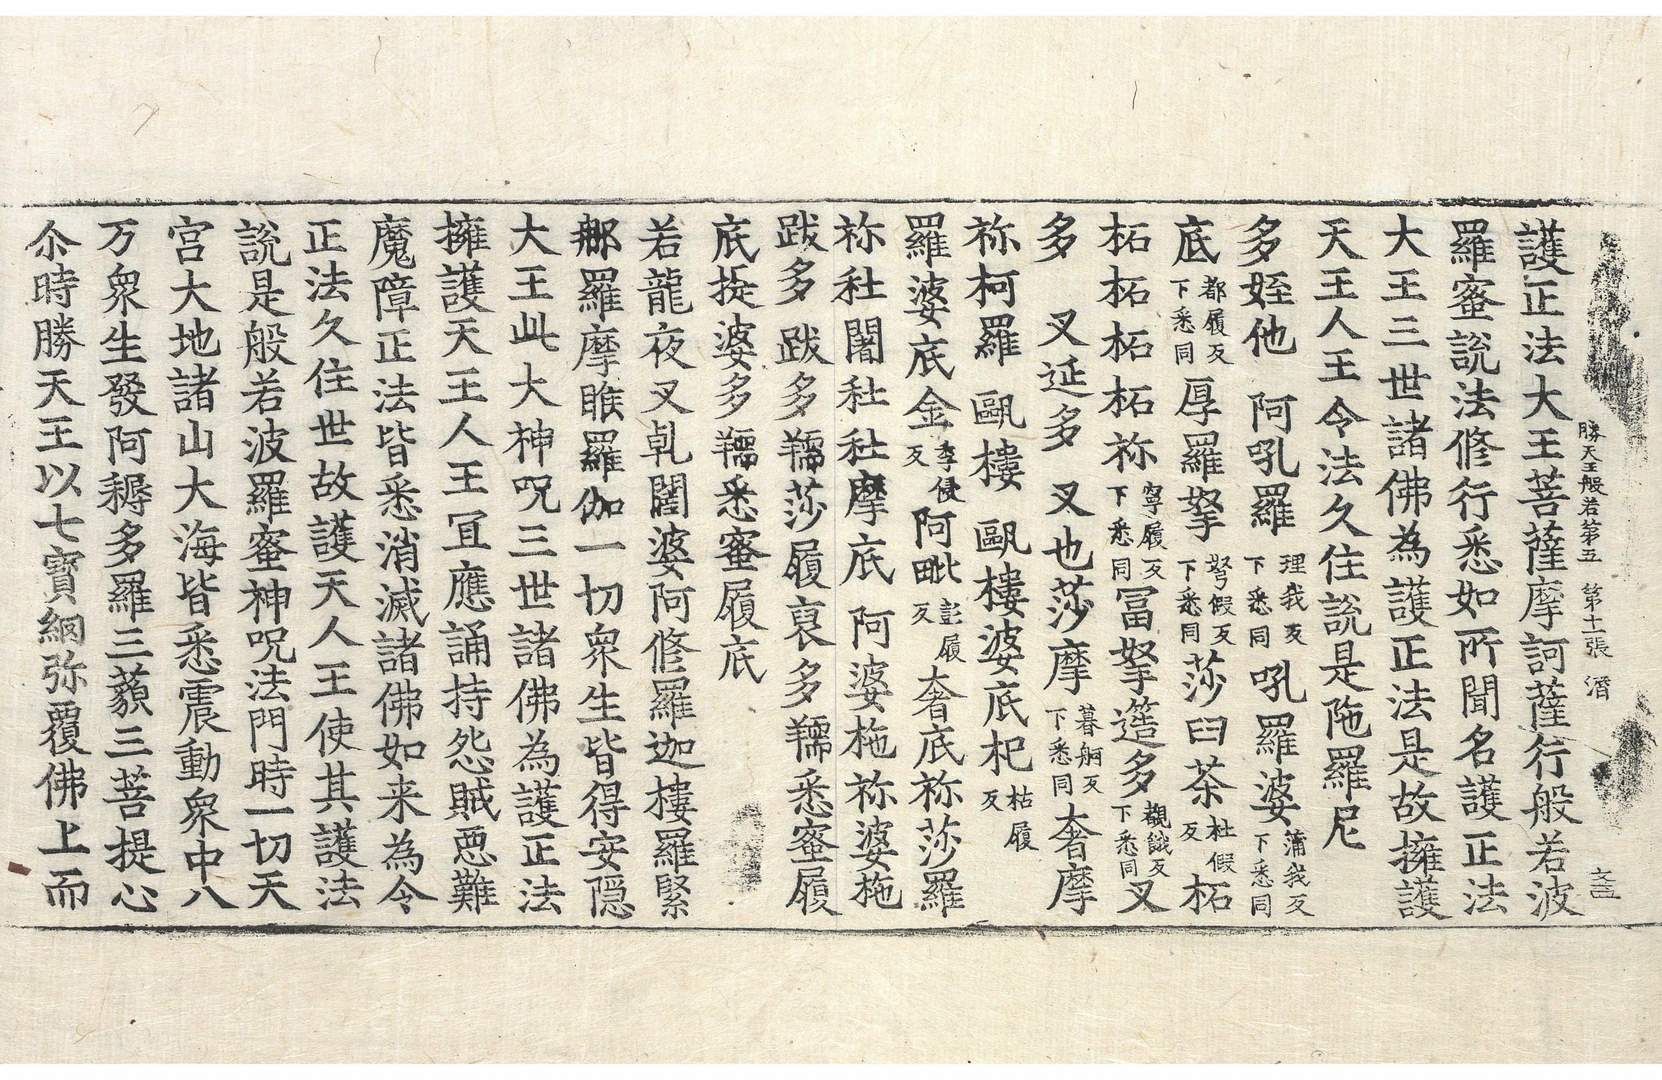 勝天王般若第五　第十一張　潛
護正法大王菩薩摩訶薩行般若波
羅蜜說法修行悉如所聞名護正法
大王三世諸佛為護正法是故擁護
天王人王令法久住說是陁羅尼
多姪他　阿吼羅理我反下悉同吼羅婆蒲我反下悉同
底都履反下悉同厚羅拏弩假反下悉同莎曰茶杜假反柘
柘柘柘祢寧履反下悉同冨拏簉多覩餓反下悉同叉
多　叉延多　叉也莎摩暮舸反下悉同奢摩
祢柯羅　甌樓　甌樓婆底杞枯履反
羅婆底金李侵反阿毗履反奢底祢莎羅
祢社闍社社摩底　阿婆施祢婆施
跋多跋多羺莎履裒多羺悉蜜履
底掟婆多羺悉蜜履底
若龍夜叉乹闥婆阿修羅迦樓羅緊
那羅摩睺羅伽一切衆生皆得安隱
大王此大神呪三世諸佛為護正法
擁護天王人王冝應誦持怨賊惡難
魔障正法皆悉消滅諸佛如来為令
正法久住世故護天人王使其護法
說是般若波羅蜜神呪法門時一切天
宮大地諸山大海皆悉震動衆中八
万衆生發阿耨多羅三藐三菩提心
尒時勝天王以七寳網弥覆佛上而